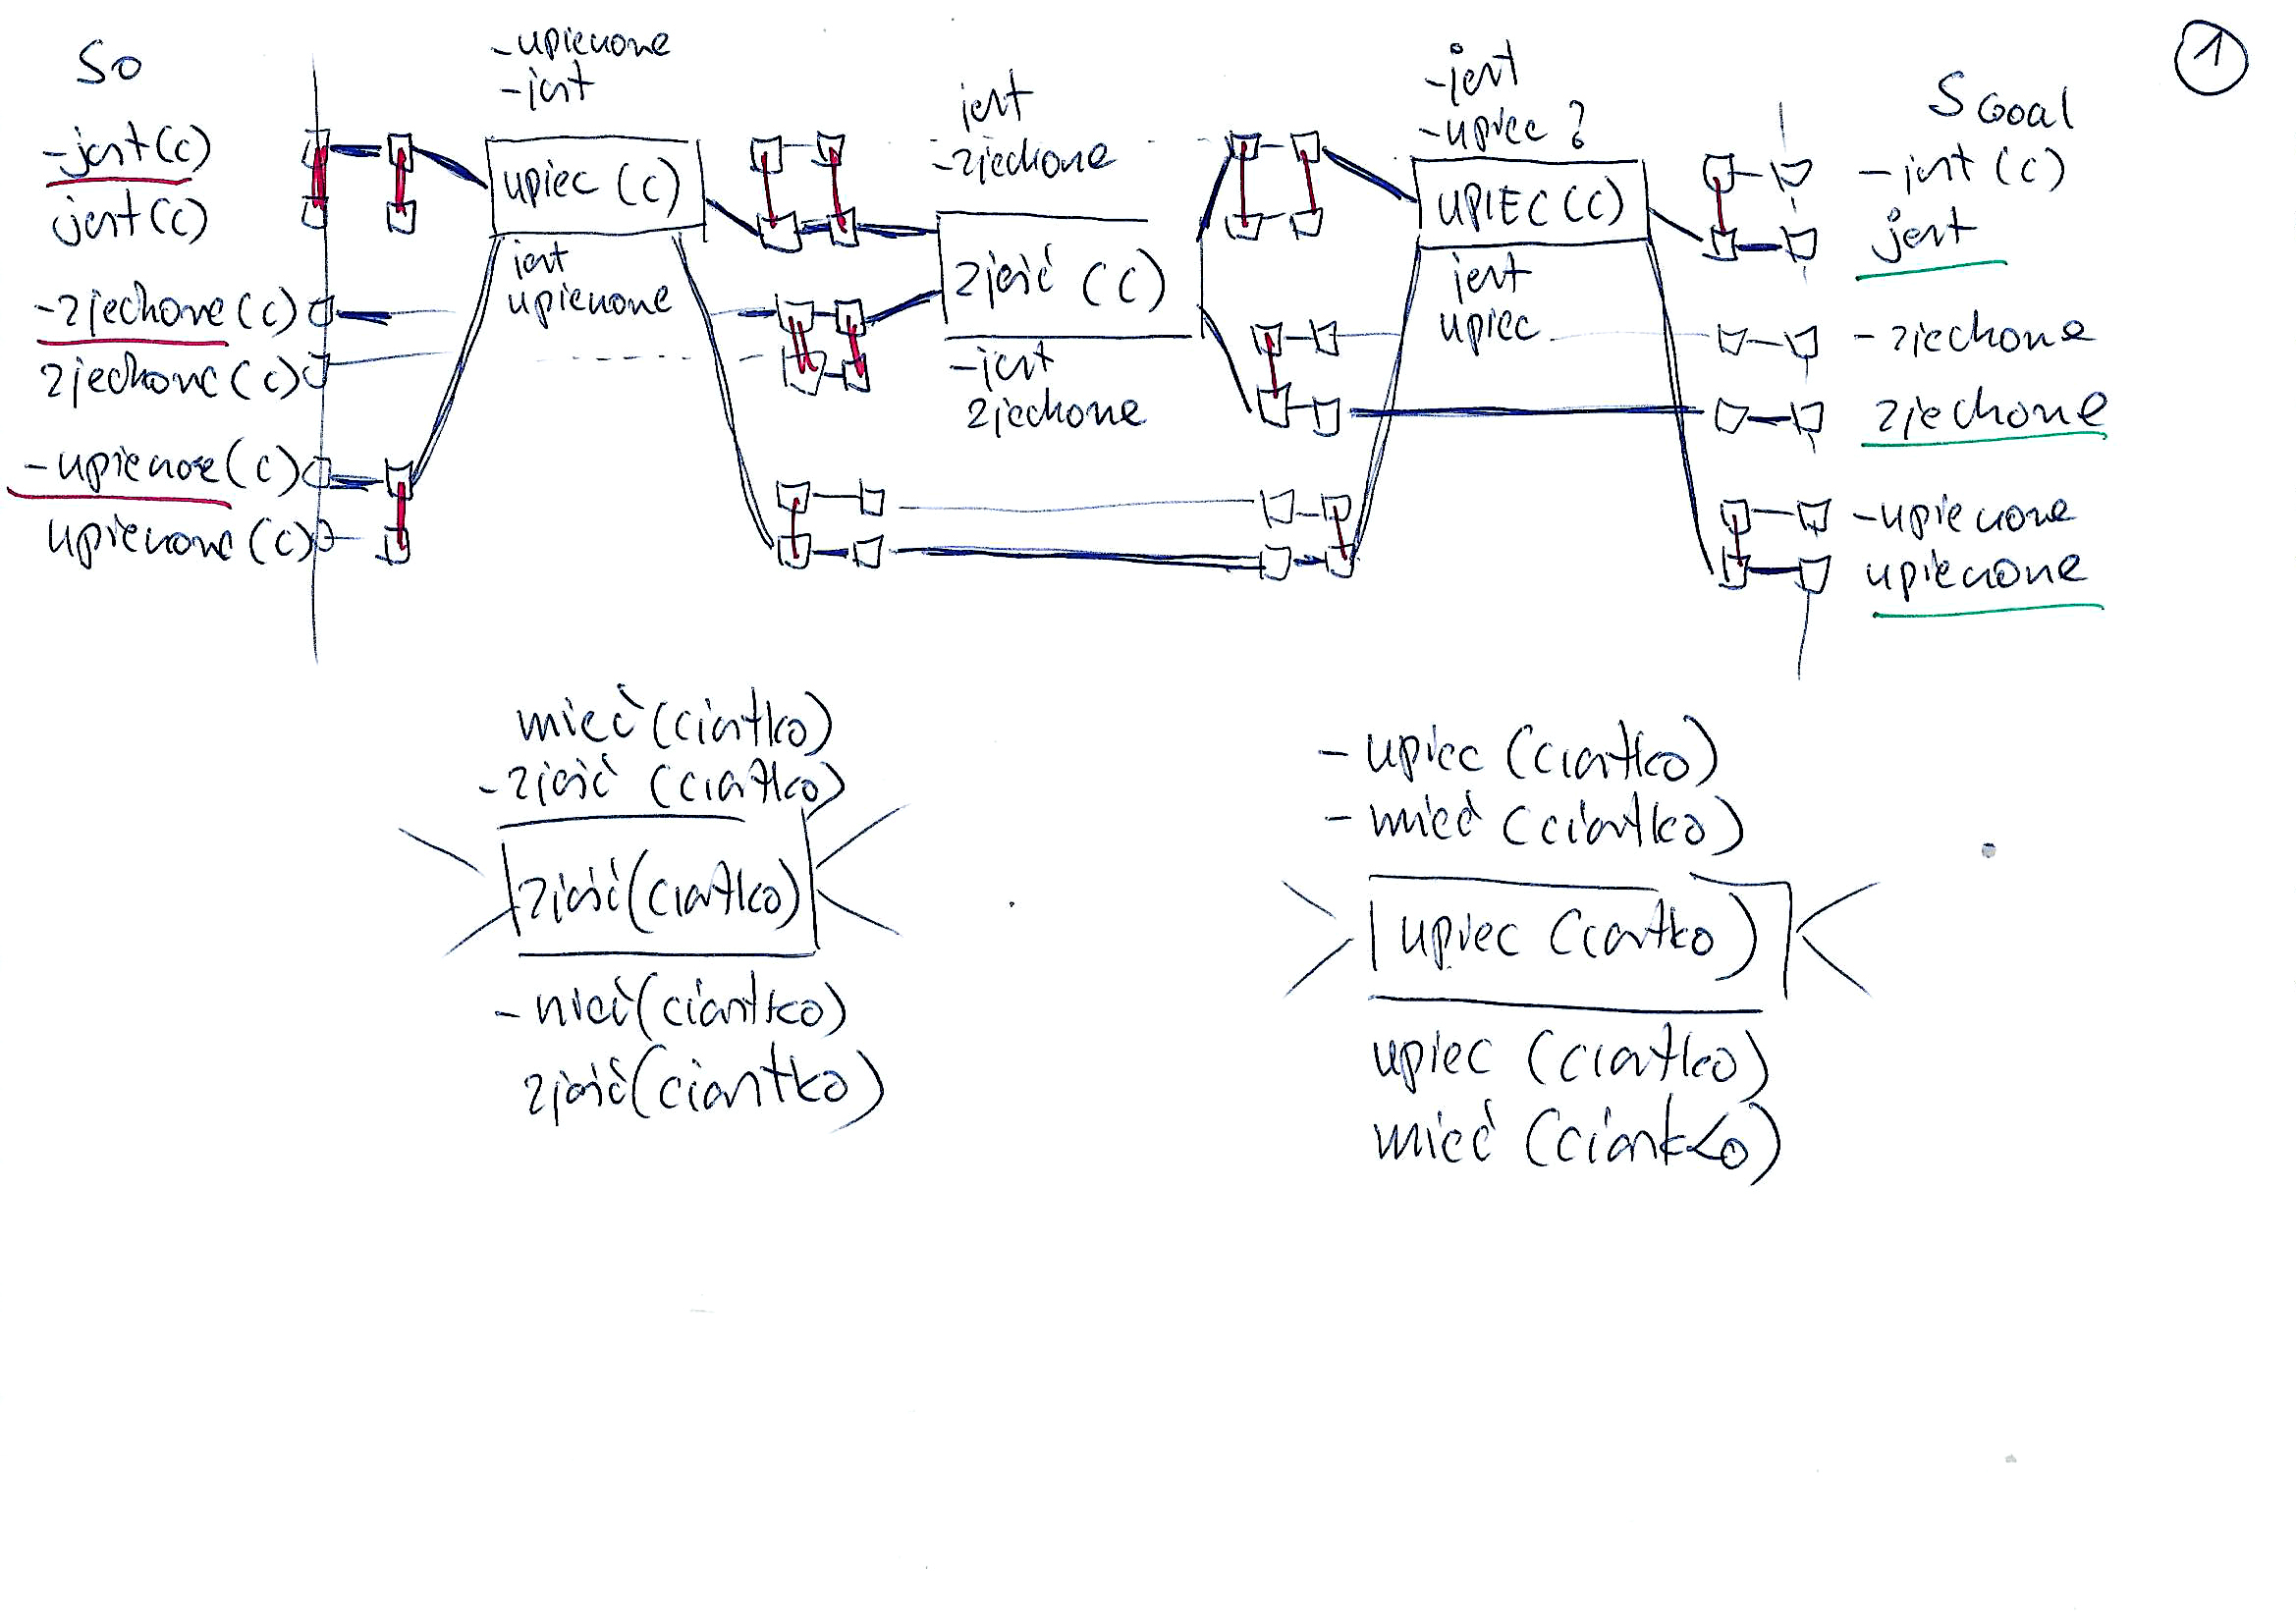 S0
-jest(c)
jest(c)
-zjedzone(c)
zjedzone(c)
-upieczoe(c)
upieczone(c)
-upieczone
-jest
upiec (c)
jest
upieczone
jest
-zjedzone
zjeść (c)
-jest
zjedzone
-jest
-upiec ?
UPIEC (C)
jest
upiec
1
S GOAL
-jest (c)
jest
-zjedzone
zjedzone
-upieczone
upieczone
mieć (ciastko)
-zjeść (ciastko)
zjeść (ciastko)
-mieć (ciastko)
zjeść (ciastko)
- upiec (ciastko)
- mieć (ciastko)
upiec (ciastko)
upiec (ciastko)
mieć (ciastko)